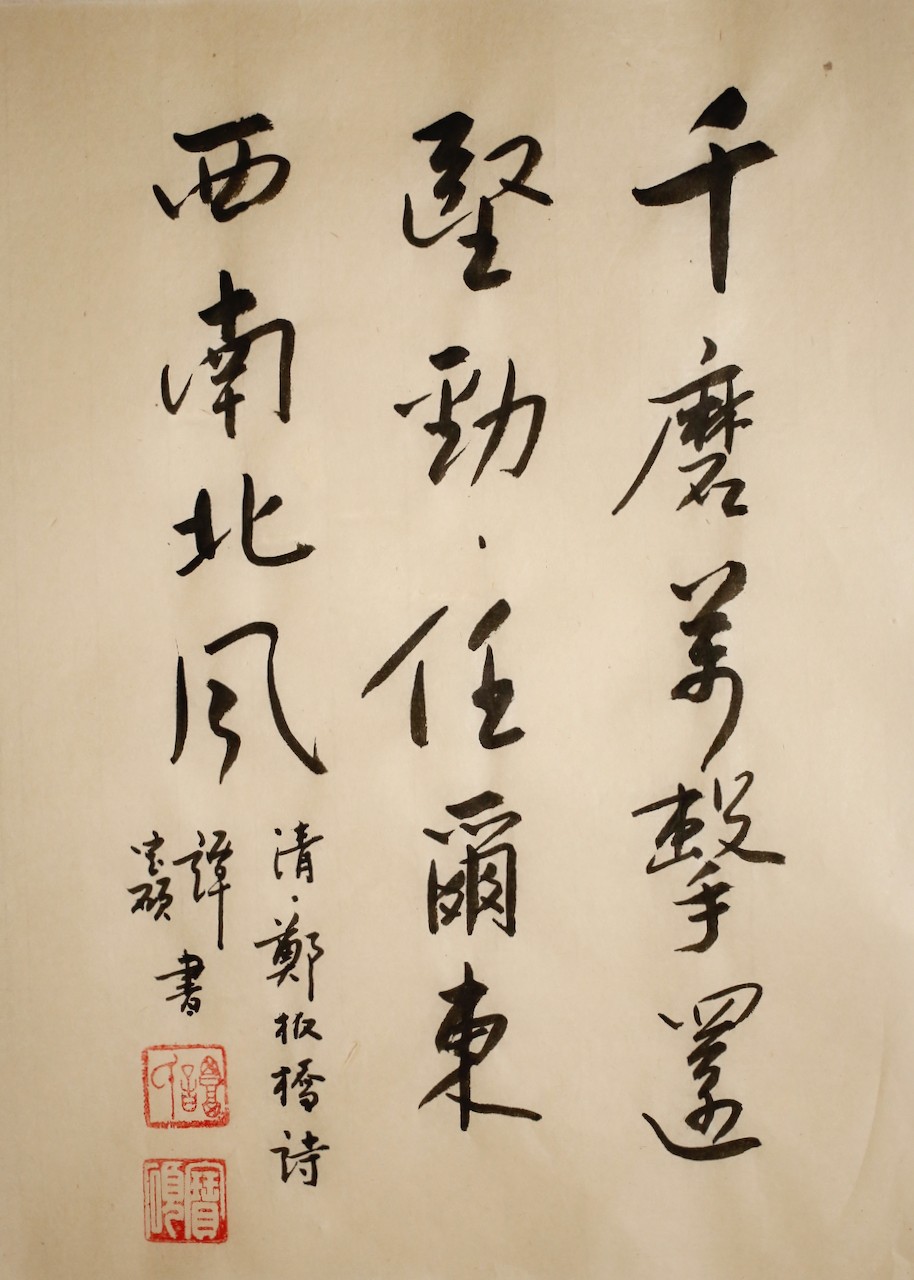 千磨萬擊還
堅勁任爾東
西南北風
清鄭板橋詩
譚
碩書